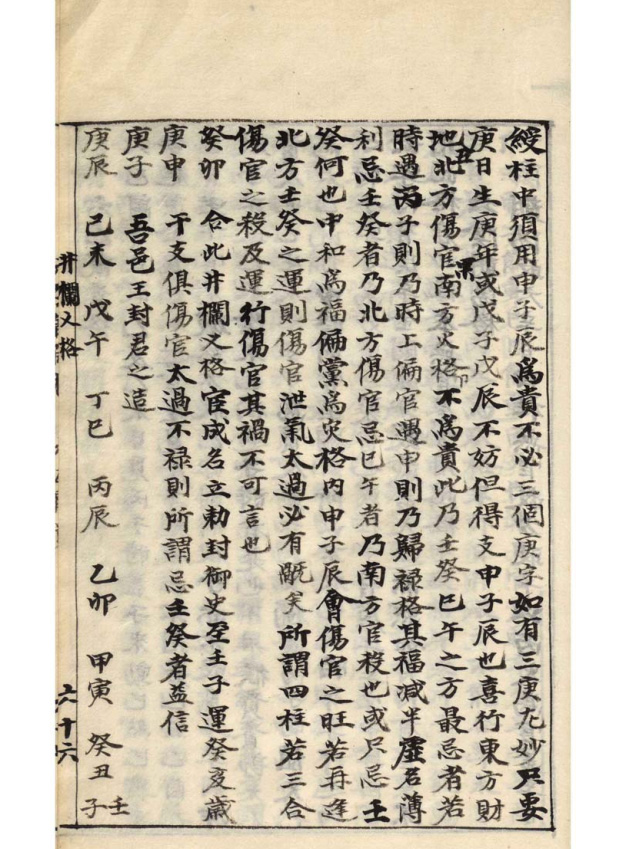 綬柱中須用申子辰為貴不必三個庚字如有三庚尤妙只要
庚日生庚年或戊子戊辰不妨但得支申子辰也喜行東方財
地北方傷官南方火格不為貴此乃壬癸巳午之方最忌者若
丑
果
時遇丙子則乃時上偏官遇申則乃歸祿格其福減半虛名薄
利忌壬癸者乃北方傷官忌巳午者乃南方官殺也或只忌壬
癸何也中和為福偏黨為災格內申子辰會傷官之旺若再逢
北方壬癸之運則傷官泄氣太過必有斲矣所謂四柱若三合
傷官之殺及運行傷官其禍不可言也
癸卯 合此井欄叉格宦成名立勅封御史至壬子運癸亥歲
庚申 干支俱傷官太過不祿則所謂忌壬癸者益信
庚子 吾邑王封君之造
庚辰 己未 戊午 丁巳 丙辰 乙卯 甲寅 癸丑 壬子
井欄叉格
六十六